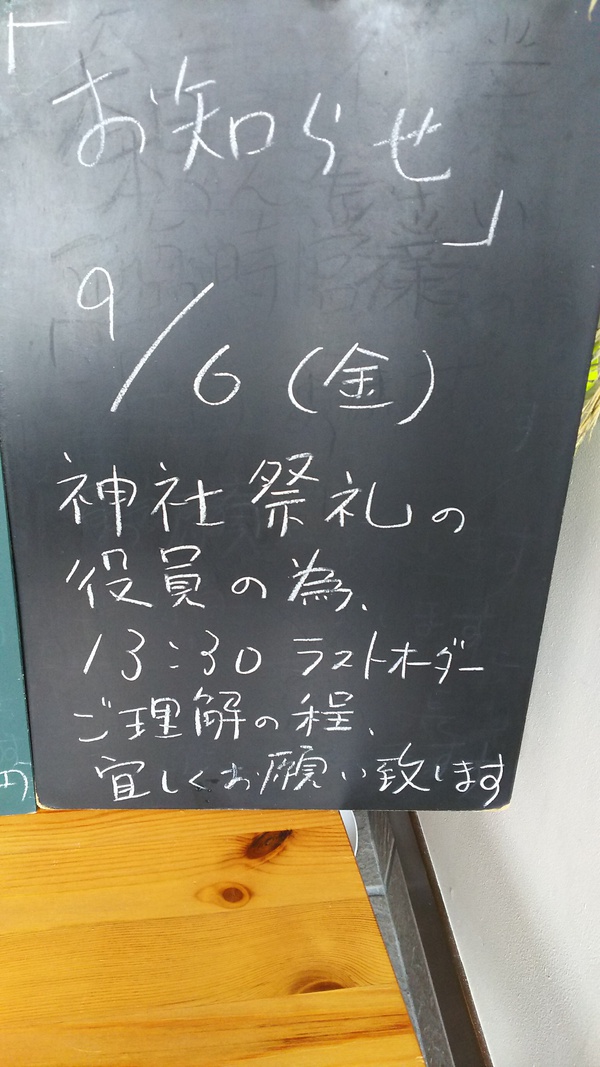 「お知らせ」
9/6(金)
神社祭礼の
役員の為、
13:30 ラストオーダー
ご理解の程、
宜しくお願い致します
円)